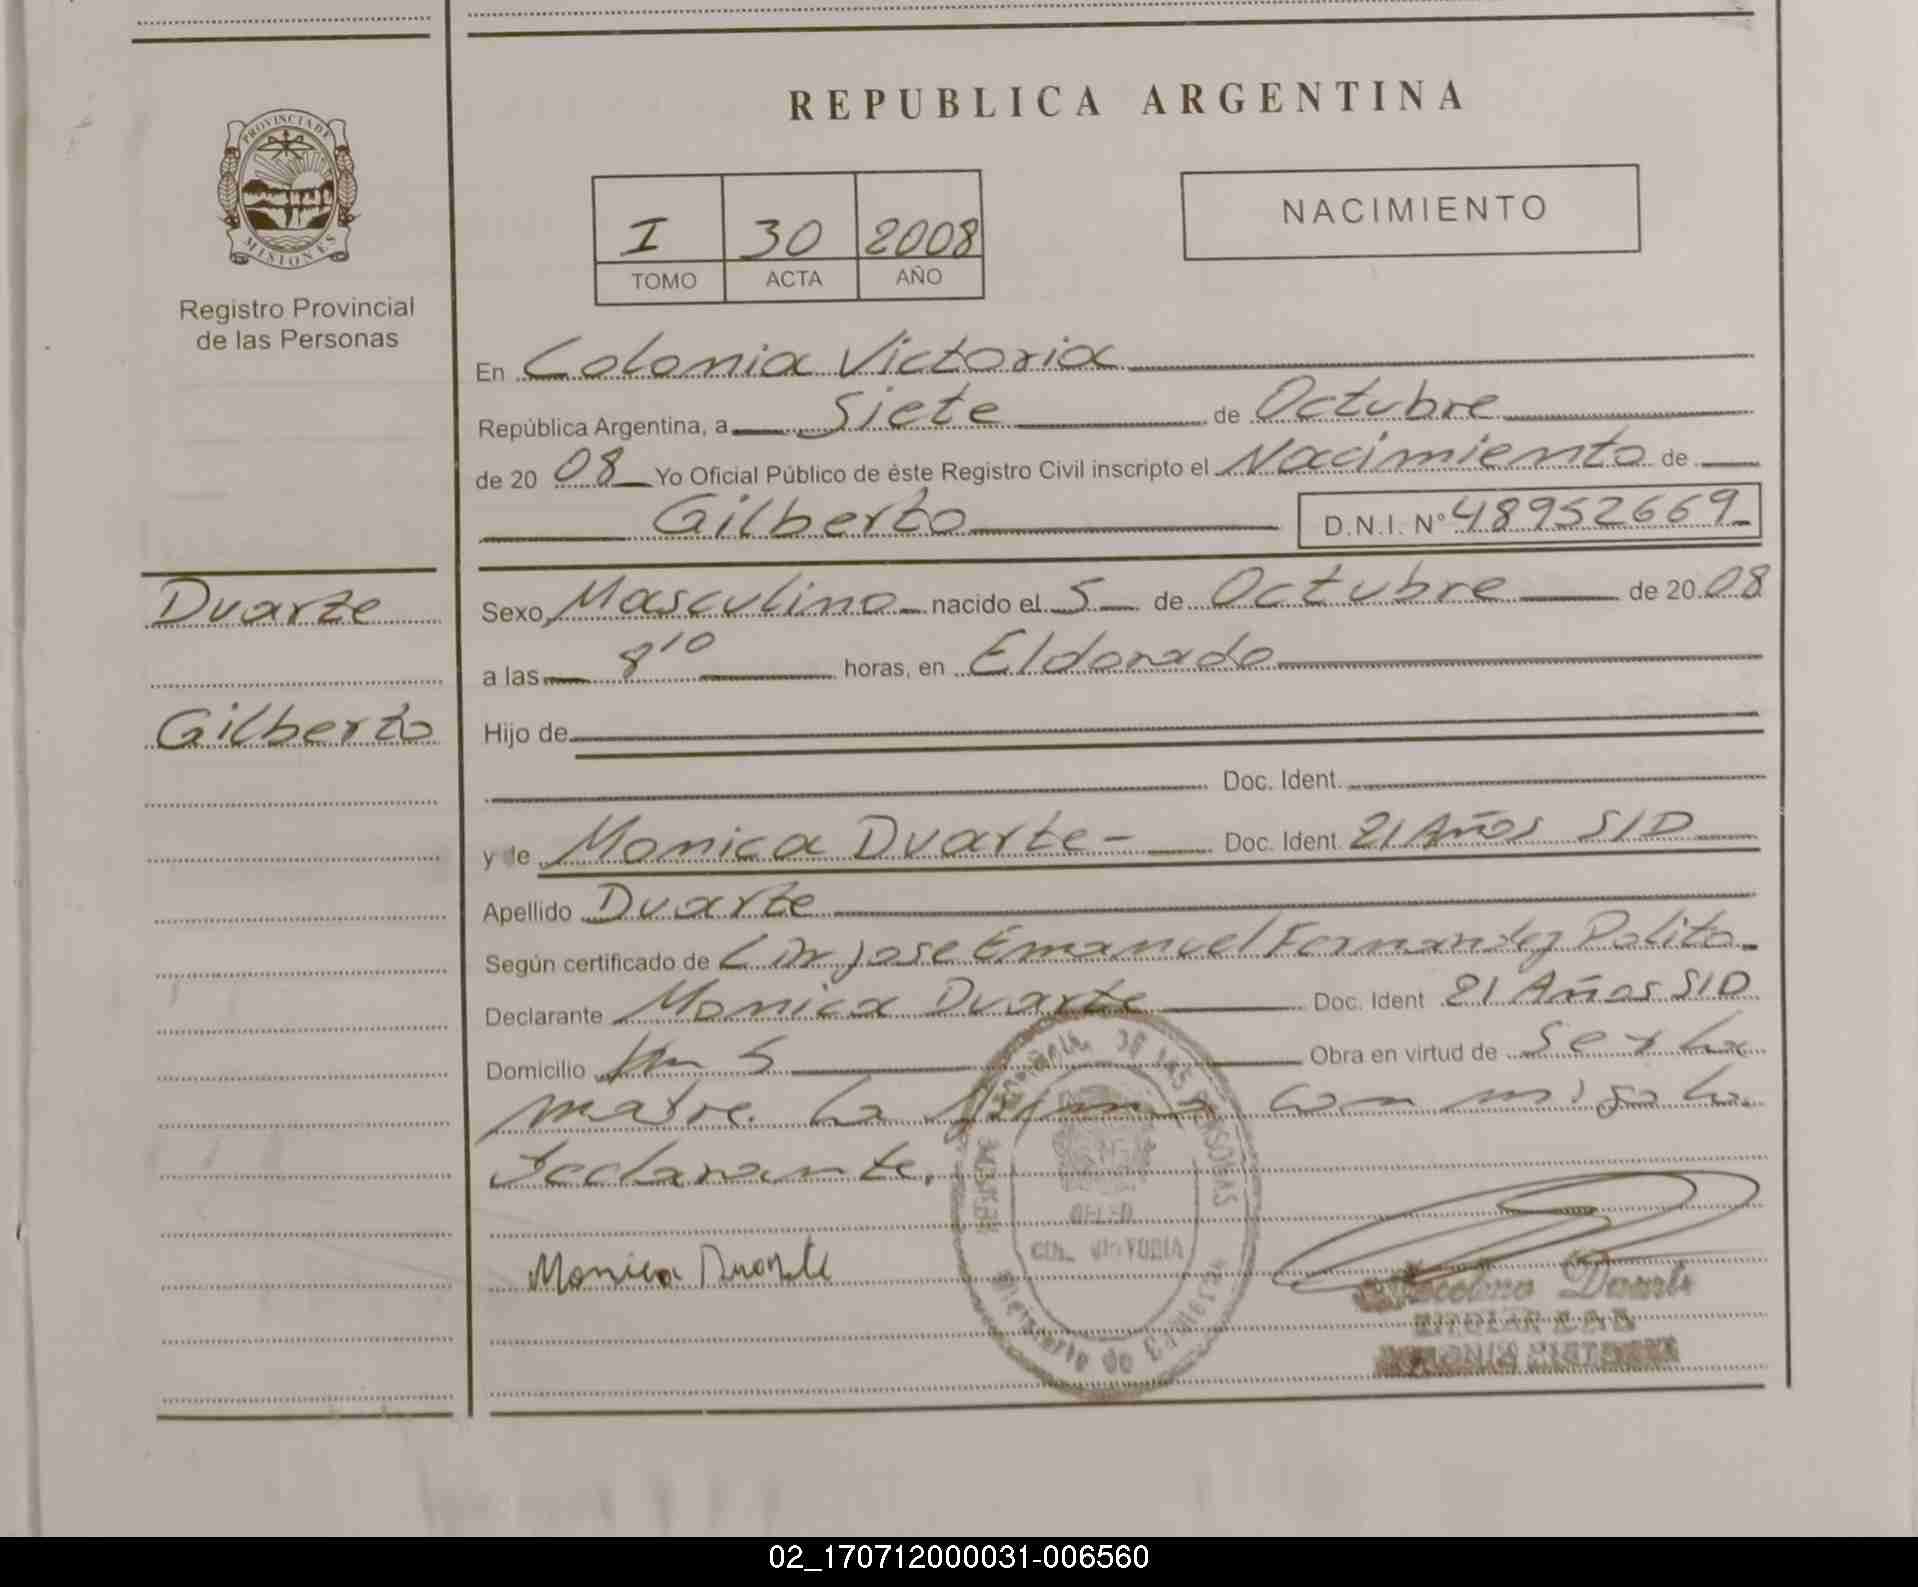 REPUBLICA ARGENTINA
PROVINCIA DE
MISIONES
Registro Provincial
de las Personas
I 30 2008
TOMO ACTA AÑO
NACIMIENTO
En Colonia Victoria
República Argentina, a Siete de Octubre
de 20 08 Yo Oficial Público de éste Registro Civil inscripto el Nacimiento de
Gilberto D.N.I. N° 48952669
Duarte
Gilberto
Sexo Masculino nacido el 5 de Octubre de 20 08
a las 8 10 horas, en Eldorado
Hijo de
Doc. Ident.
y de Monica Duarte - Doc. Ident. 21 Años S/D
Apellido Duarte
Según certificado de Jose Emanuel Fernandez
Declarante Monica Duarte Doc. Ident 21 Años S/D
Domicilio Km 5 Obra en virtud de Ser la
madre. La firma con migo la
declarante.
Monica Duarte
DE LAS PERSONAS
COL. VICTORIA
Ministerio de Gobierno
Duarte
02_170712000031-006560